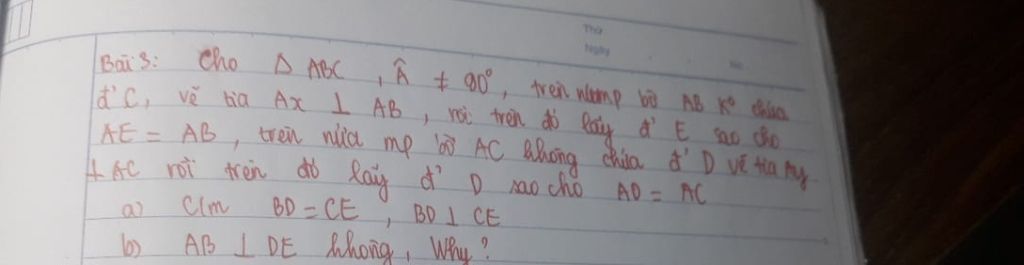 Thứ
Ngày
No
Bài 3: Cho Δ ABC, Â ≠ 90°, trên nửa mp bờ AB k° chứa
đ' C, vẽ tia Ax ⊥ AB, rồi trên đó lấy đ' E sao cho
AE = AB, trên nửa mp bờ AC không chứa đ' D vẽ tia Ay
⊥ AC rồi trên đó lấy đ' D sao cho AD = AC
a) C/m BD = CE, BD ⊥ CE
b) AB ⊥ DE không, Why?